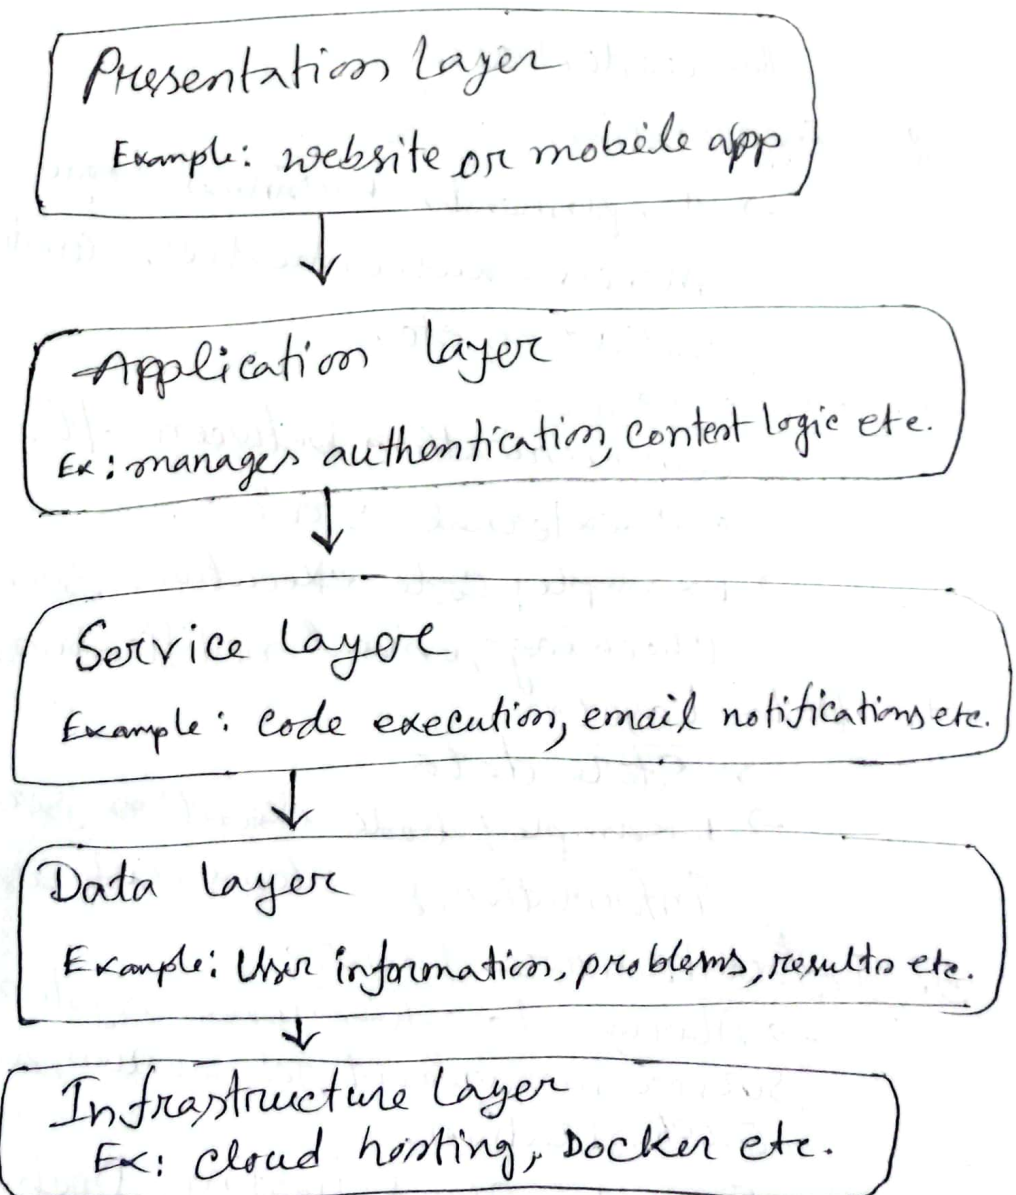 Presentation Layer
Example: website or mobile app
Application layer
Ex: manages authentication, content logic etc.
Service layer
Example: code execution, email notifications etc.
Data layer
Example: User information, problems, results etc.
Infrastructure Layer
Ex: cloud hosting, Docker etc.